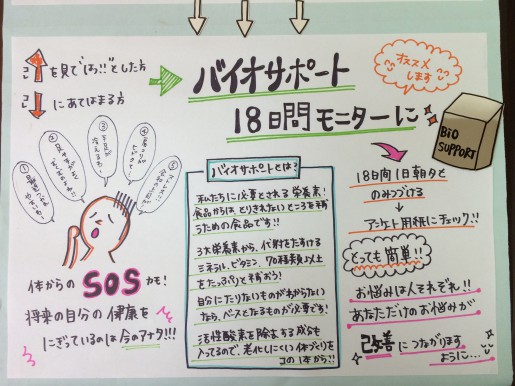 を見て"はっ!!"とした方
にあてはまる方
バイオサポート
18日間モニターに
オススメ
します
BiO
SUPPORT
①
②
③
④
⑤
体からのSOSかも!
将来の自分の健康を
にぎっているのは今のアナタ!!!
バイオサポートとは?
私たちに必要とされる栄養素!
食品からはとりきれないところを補
うための食品です!!
3大栄養素から、代謝をたすける
ミネラル、ビタミン、70種類以上
をたっぷりと補おう!
自分にたりないものがわからない
なら、ベースとなるものが必要です!
活性酸素を除去する成分も
入ってるので、老化しにくい体づくりを
コの1本から!!
18日間1日朝夕と
のみつづける
→アンケート用紙にチェック!!
とっても簡単!!
お悩みは人それぞれ!!
あなただけのお悩みが
改善につながります
ように…